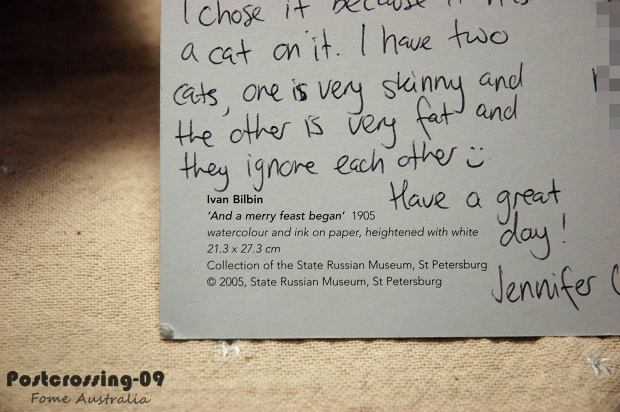 I chose it because it has
a cat on it. I have two
cats, one is very skinny and
the other is very fat and
they ignore each other
Have a great
day!
Jennifer
Ivan Bilbin
'And a merry feast began' 1905
watercolour and ink on paper, heightened with white
21.3 x 27.3 cm
Collection of the State Russian Museum, St Petersburg
© 2005, State Russian Museum, St Petersburg
Postcrossing-09
Fome Australia